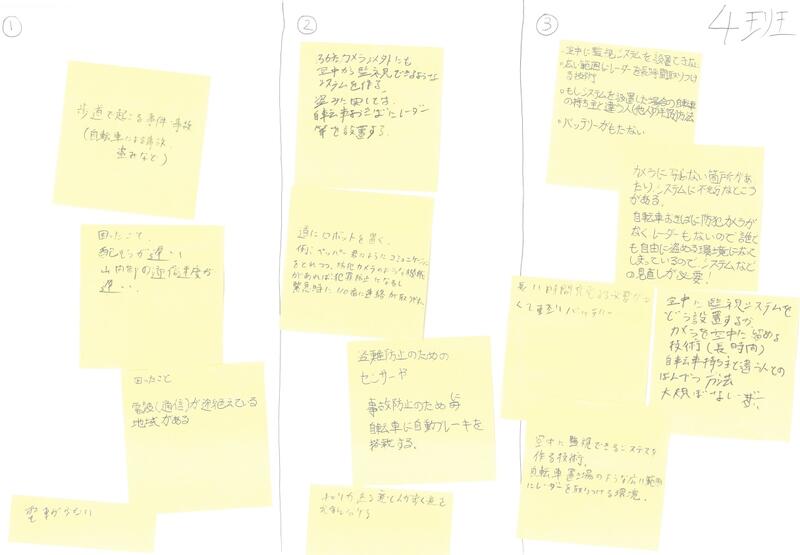 4班
①
歩道で起こる事件・事故
(自転車による事故、
盗みなど)
困ったこと、
配もうが遅い
山内部の通信速度が
遅い、
困ったこと
電波(通信)が途絶えている
地域がある
②
360°カメラ以外にも
空中から監視できるような
システムを作る。
盗みに関しては、
自転車おきばにレーダー
等を設置する。
道にロボットを置く。
例、ペッパー君のようにコミュニケーション
をとれつつ、防犯カメラのような機能
があれば犯罪防止になるし
緊急時に110番に連絡が取りやすい
盗難防止のための
センサーや
事故防止のために
自転車に自動ブレーキを
搭載する。
③
・空中に監視システムを設置できない
・広い範囲にレーダーを長時間取りつけ
る技術
・もしシステムを設置した場合の自転車
の持ち主と違う人(他人)の判別方法
・バッテリーがもたない
カメラに写らない箇所があ
たり、システムに不十分なところ
がある。
自転車おきばに防犯カメラが
なくレーダーもないので誰で
も自由に盗める環境になって
しまっているので システムなど
の見直しが必要!
長い時間充電する必要がな
くて軽いバッテリー
空中に監視システムを
どう設置するか、
カメラを空中に留める
技術(長時間)
自転車持ち主と違う人との
はんべつ方法
空中に監視できるシステムを
作る技術。
自転車置き場のような広い範囲
にレーダーを取りつける環境。